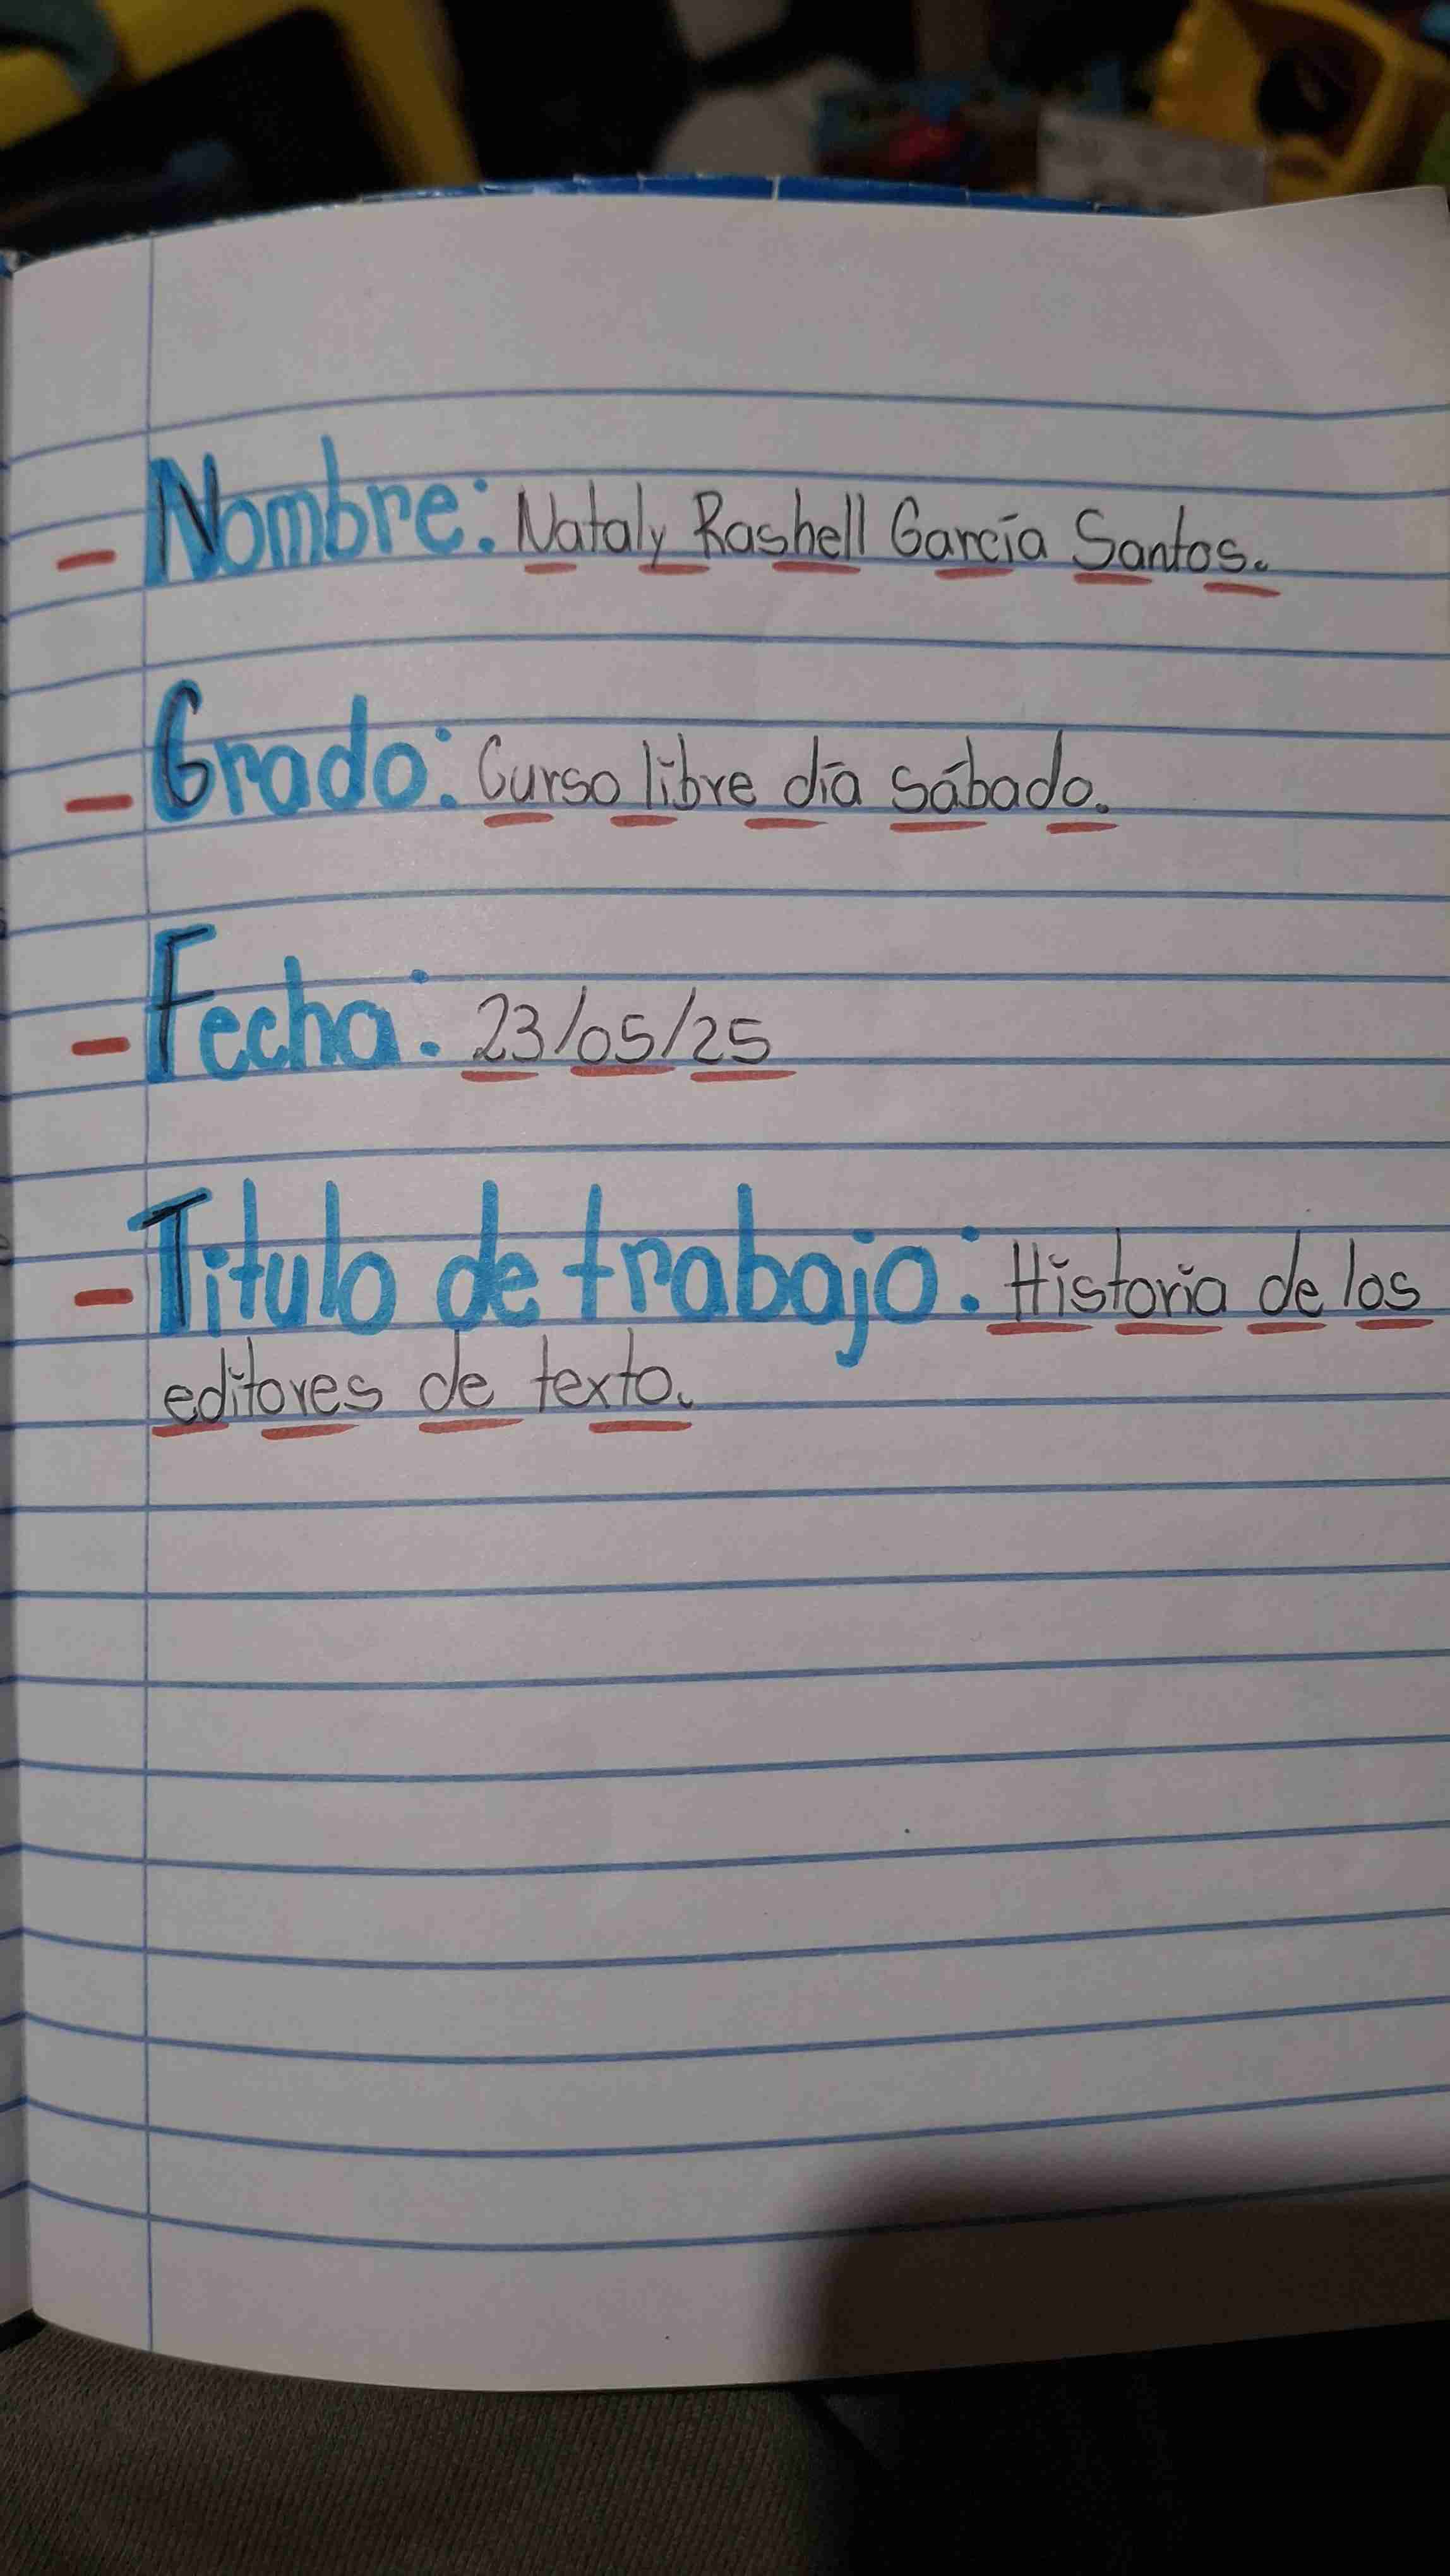 - Nombre: Nataly Rashell García Santos.
- Grado: Curso libre día sábado.
- Fecha: 23/05/25
- Titulo de trabajo: Historia de los
editores de texto.